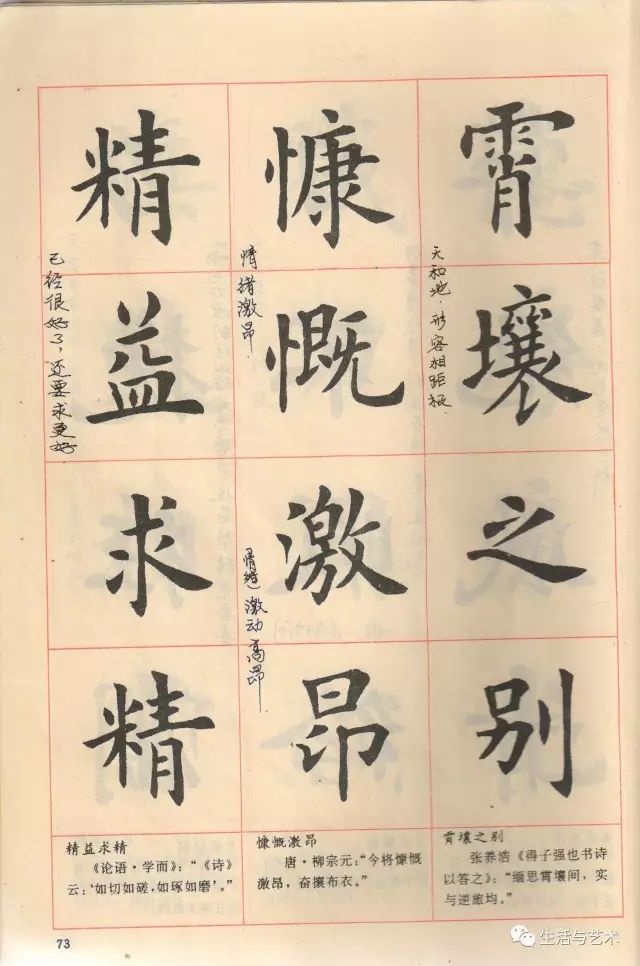 霄壤之别
天和地.形容相距极.
慷慨激昂
情绪激昂
情绪激动高昂.
精益求精
已经很好了,还要求更好
霄壤之别
张养浩《得子强也书诗
以答之》:“缅思霄壤间,实
与逆旅均。”
慷慨激昂
唐·柳宗元:“今将慷慨
激昂,奋攘布衣。”
精益求精
《论语·学而》:“《诗》
云:‘如切如磋,如琢如磨’。”
73
生活与艺术